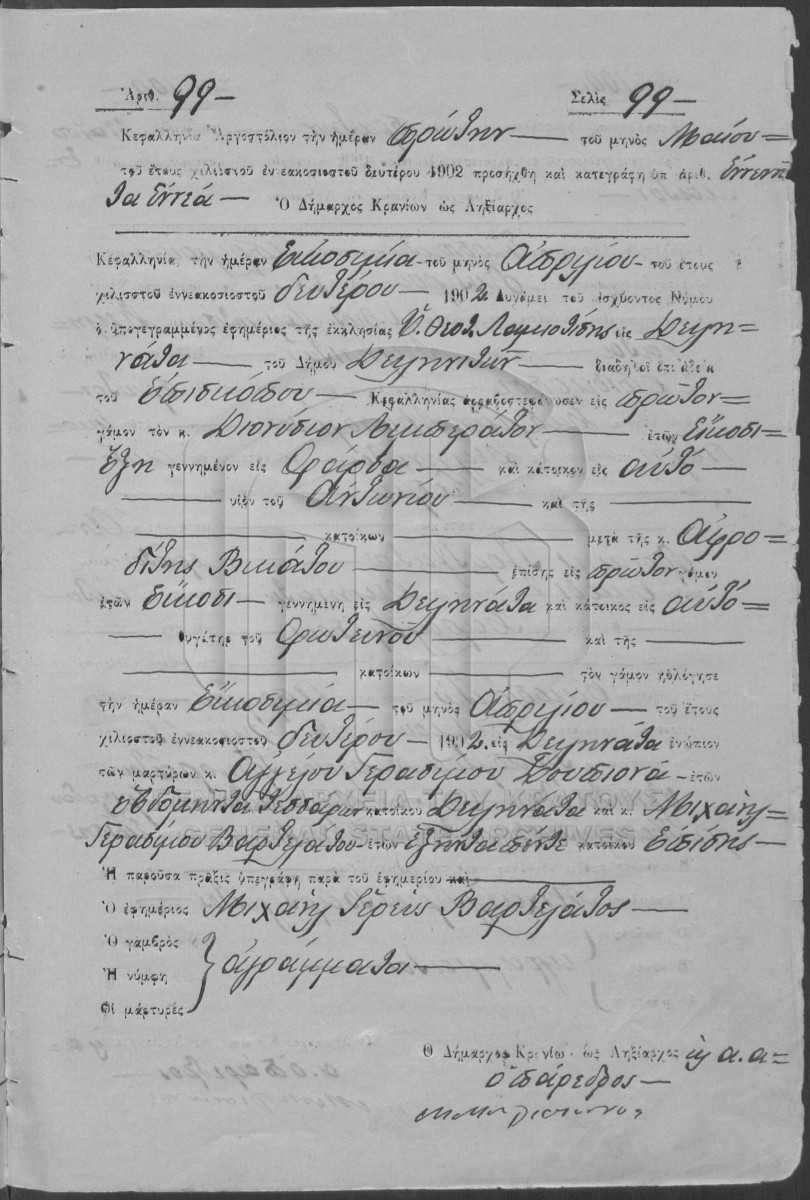 Ἀριθ. 99 — Σελὶς 99 —
Κεφαλληνία Ἀργοστόλιον τὴν ἡμέραν πρώτην — τοῦ μηνὸς Μαΐου =
τοῦ ἔτους χιλιοστοῦ ἐννεακοσιοστοῦ δευτέρου 1902 προσήχθη καὶ κατεγράφη ὑπ' ἀριθ. ἐννενή
τα ἐννέα — Ὁ Δήμαρχος Κρανίων ὡς Ληξίαρχος
Κεφαλληνία, τὴν ἡμέραν Εἰκοσιμία - τοῦ μηνὸς Ἀπριλίου - τοῦ ἔτους
χιλιοστοῦ ἐννεακοσιοστοῦ δευτέρου — 1902. Δυνάμει τοῦ ἰσχύοντος Νόμου
ὁ ὑπογεγραμμένος ἐφημέριος τῆς ἐκκλησίας Ὑ. Θεοτ. Λαμιωτίσης εἰς Δειλη =
νάτα — τοῦ Δήμου Δειληνιτῶν — διαδηλοῖ ὅτι ἀδείᾳ
τοῦ Ἐπισκόπου — Κεφαλληνίας ἀρραβοστεφάνωσεν εἰς πρῶτον =
γάμον τὸν κ. Διονύσιον Λιμπεράτον — ἐτῶν εἴκοσι =
ἕξη γεννημένον εἰς Φάρσα — καὶ κάτοικον εἰς αὐτό —
— υἱὸν τοῦ Ἀντωνίου — καὶ τῆς —
— κατοίκων — μετὰ τῆς κ. Ἀφρο =
δίτης Βικάτου — ἐπίσης εἰς πρῶτον γάμον
ἐτῶν εἴκοσι — γεννημένη εἰς Δειληνάτα καὶ κάτοικος εἰς αὐτό =
— θυγάτηρ τοῦ Φωτεινοῦ — καὶ τῆς —
— κατοίκων — τὸν γάμον ηὐλόγησε
τὴν ἡμέραν Εἰκοσιμία — τοῦ μηνὸς Ἀπριλίου — τοῦ ἔτους
χιλιοστοῦ ἐννεακοσιοστοῦ δευτέρου — 1902. εἰς Δειληνάτα ἐνώπιον
τῶν μαρτύρων κ. Ἀγγέλου Γερασίμου — ἐτῶν
ἑβδομήντα τεσσάρων κατοίκου Δειληνάτα καὶ κ. Μιχαὴλ =
Γερασίμου Βαρτελάτου - ἐτῶν ἑξήντα πέντε κατοίκου Ἐπίσης —
Ἡ παροῦσα πρᾶξις ὑπεγράφη παρὰ τοῦ ἐφημερίου καὶ —
Ὁ ἐφημέριος Μιχαὴλ Ἱερεὺς Βαρτελάτος —
Ὁ γαμβρὸς
Ἡ νύμφη ἀγράμματα —
Οἱ μάρτυρες
Ὁ Δήμαρχος Κρανίων ὡς Ληξίαρχος α.α =
ὁ πάρεδρος —
ΓΕΝΙΚΑ ΑΡΧΕΙΑ ΤΟΥ ΚΡΑΤΟΥΣ
GENERAL STATE ARCHIVES